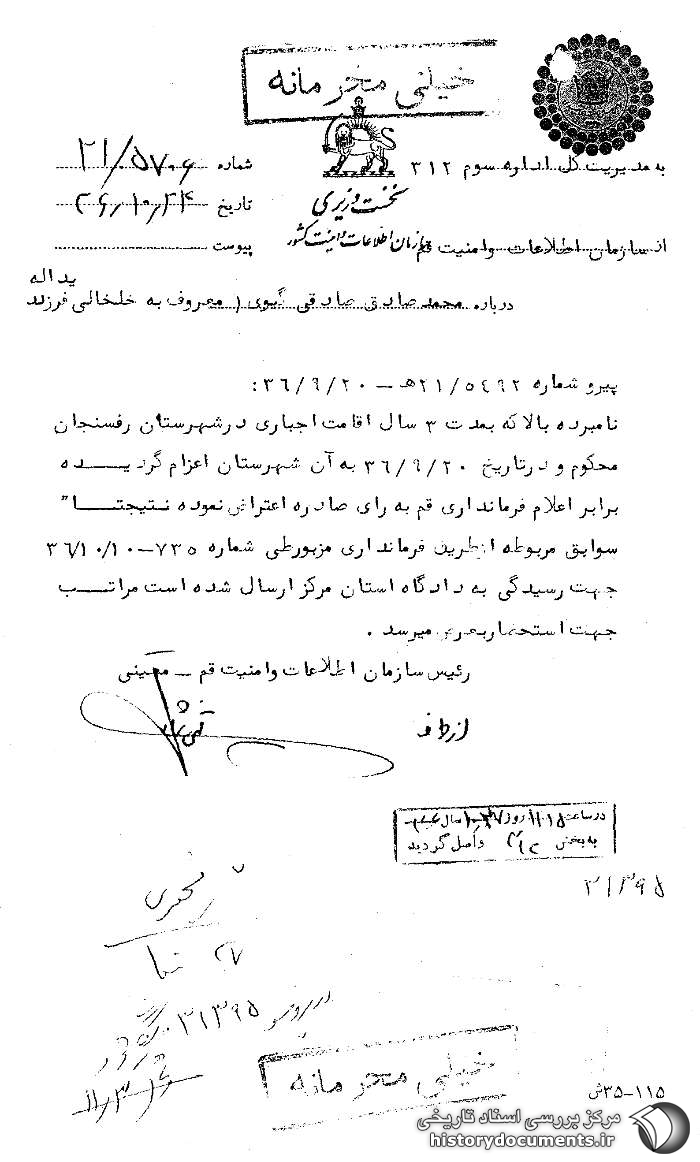 خیلی محرمانه
به مدیریت کل اداره سوم ۳۱۲
شماره ۲۱/۵۷۰۶
نخست وزیری
تاریخ ۳۶/۱۰/۲۴
سازمان اطلاعات و امنیت کشور
از سازمان اطلاعات و امنیت قم
پیوست
درباره محمد صادق صادقی گیوی ( معروف به خلخالی فرزند یداله
پیرو شماره ۲۱/۵۴۹۲ه‍ – ۳۶/۹/۲۰:
نامبرده بالا که بمدت ۳ سال اقامت اجباری در شهرستان رفسنجان
محکوم و در تاریخ ۳۶/۹/۲۰ به آن شهرستان اعزام گردیـــده
برابر اعلام فرمانداری قم به رای صادره اعتراض نموده نتیجتـــا"
سوابق مربوطه ازطریق فرمانداری مزبور طی شماره ۷۳۵-۳۶/۱۰/۱۰
جهت رسیدگی به دادگاه استان مرکز ارسال شده است مراتـــب
جهت استحضار بعرض میرسد .
رئیس سازمان اطلاعات و امنیت قم – معینی
از طرف
در ساعت ۱۱:۱۵ روز
سال
به بخش ۳۱۲ واصل گردید
۳۱۳۹۵
۳۱۳۹۵
خیلی محرمانه
۳۵-۱۱۵ش
مرکز بررسی اسناد تاریخی
historydocuments.ir